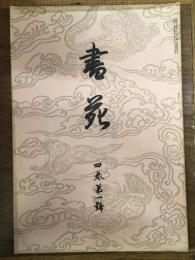 書苑
四巻第一号